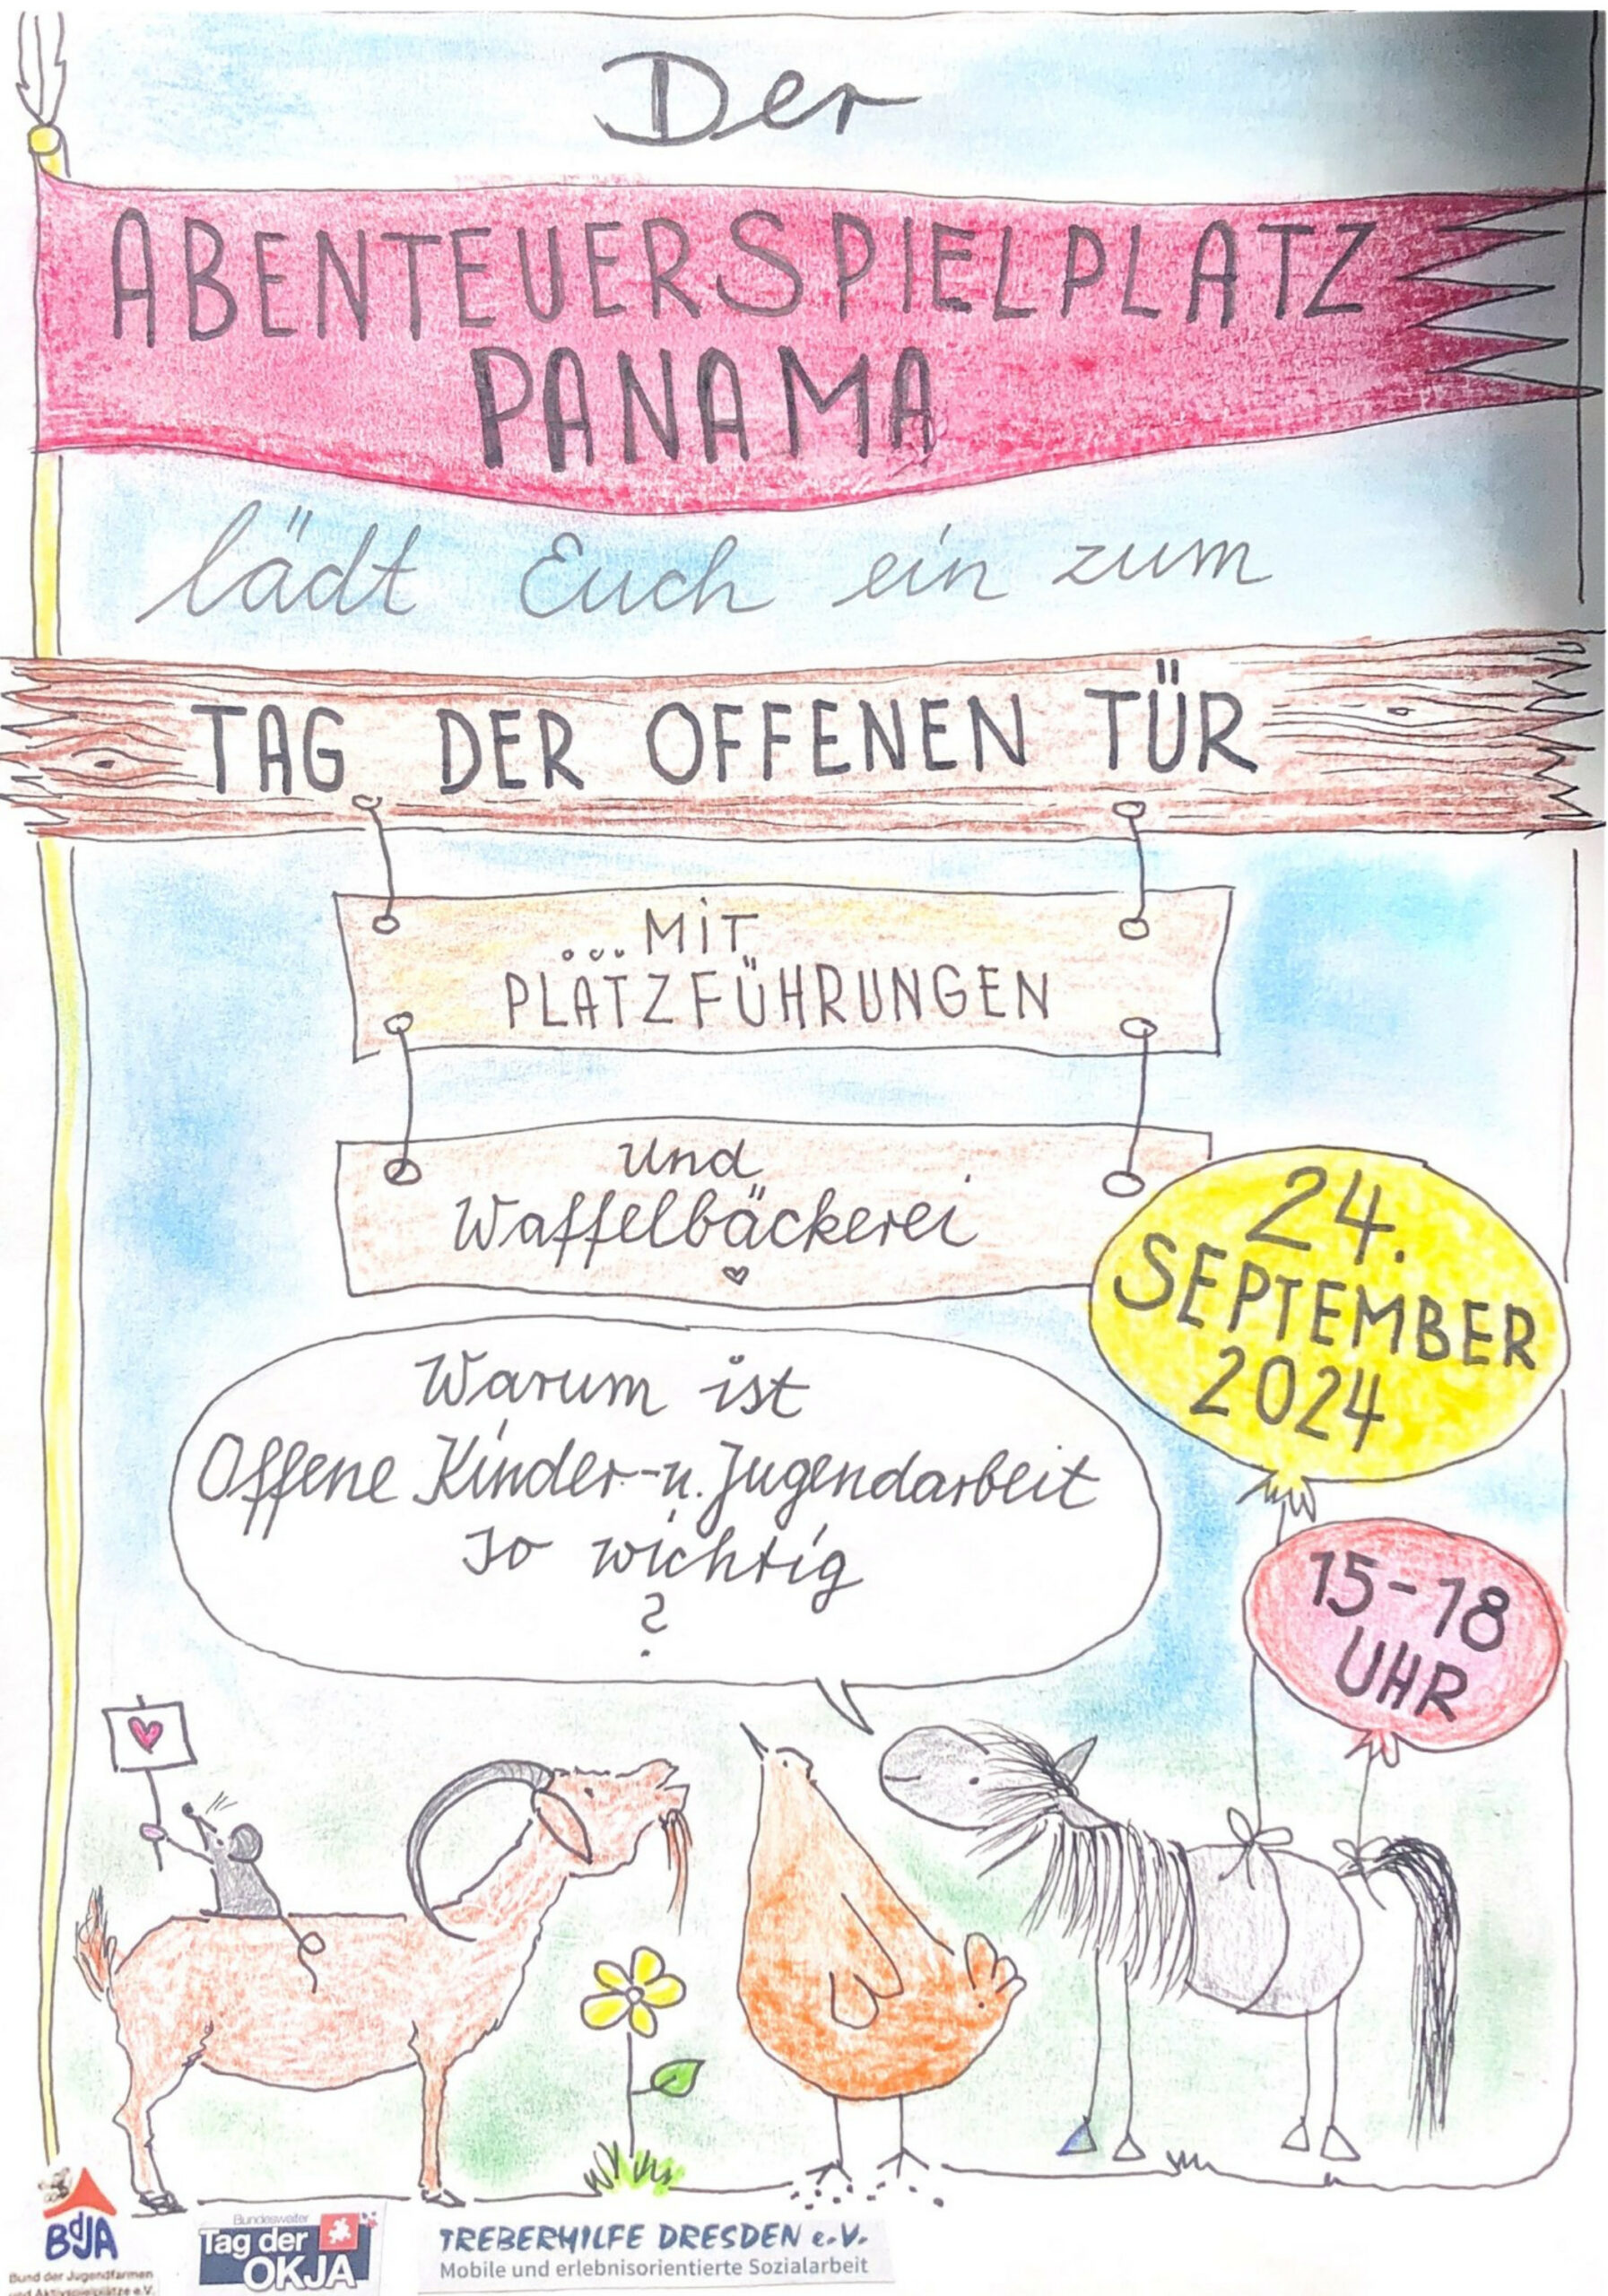 Der
ABENTEUERSPIELPLATZ
PANAMA
lädt Euch ein zum
TAG DER OFFENEN TÜR
...MIT
PLATZFÜHRUNGEN
und
Waffelbäckerei
24.
SEPTEMBER
2024
Warum ist
Offene Kinder-u. Jugendarbeit
so wichtig
?
15-18
UHR
BdJA
Bund der Jugendfarmen
und Aktivspielplätze e.V.
Bundesweiter
Tag der
OKJA
TREBERHILFE DRESDEN e.V.
Mobile und erlebnisorientierte Sozialarbeit